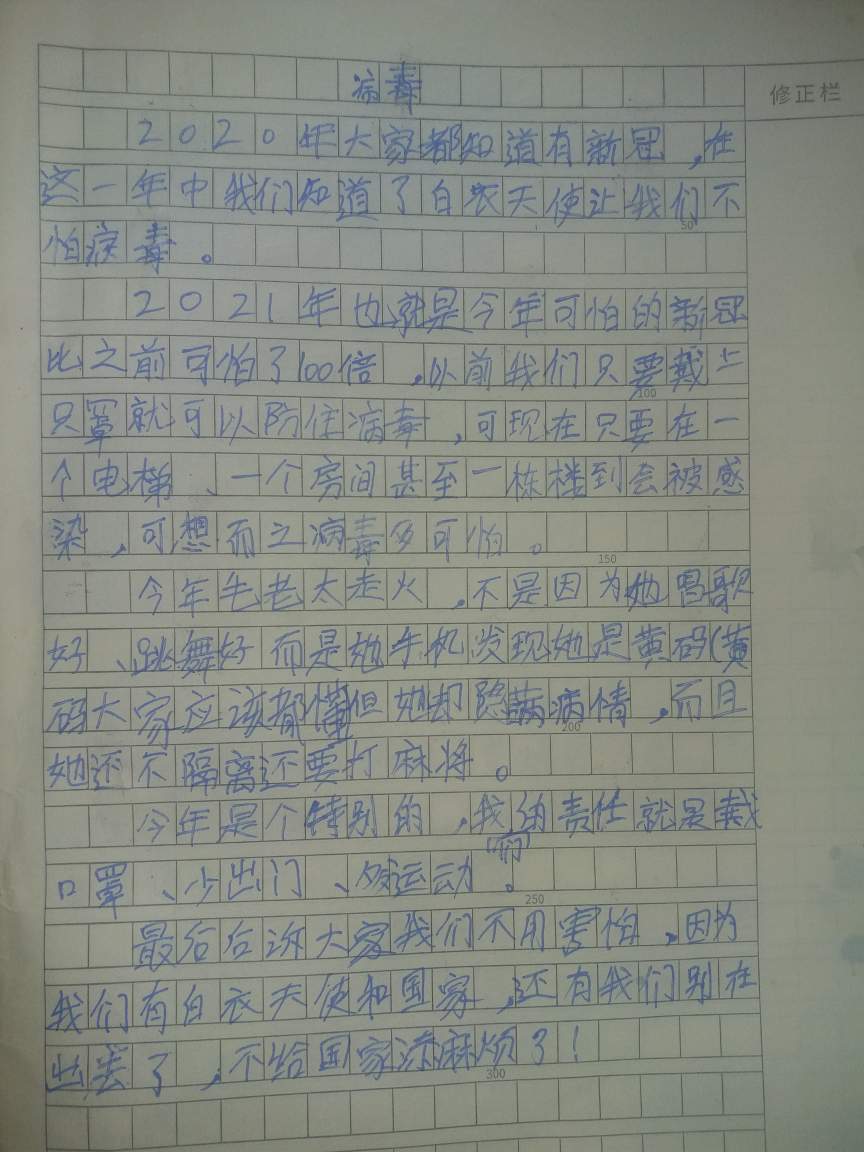 病毒
修正栏
2020年大家都知道有新冠,在
这一年中我们知道了白衣天使让我们不
50
怕病毒。
2021年也就是今年可怕的新冠
比之前可怕了100倍,以前我们只要戴上
100
只罩就可以防住病毒,可现在只要在一
个电梯、一个房间甚至一栋楼到会被感
染,可想而之病毒多可怕。
150
今年毛老太走火,不是因为她唱歌
好、跳舞好而是她手机发现她是黄码(黄
码大家应该都懂但她却隐瞒病情,而且
200
她还不隔离还要打麻将。
今年是个特别的,我的责任就是戴
(们)
口罩、少出门、做运动。
250
最后告诉大家我们不用害怕,因为
我们有白衣天使和国家,还有我们别在
出丢了,不给国家添麻烦了!
300